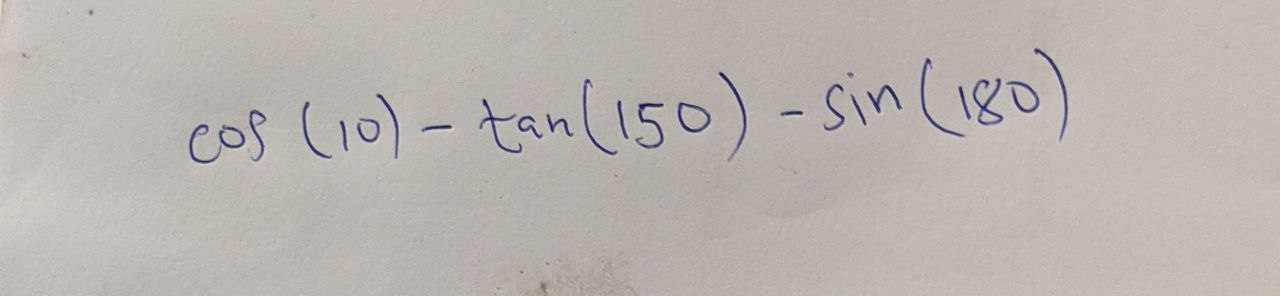 cos (10) - tan(150) - sin(180)